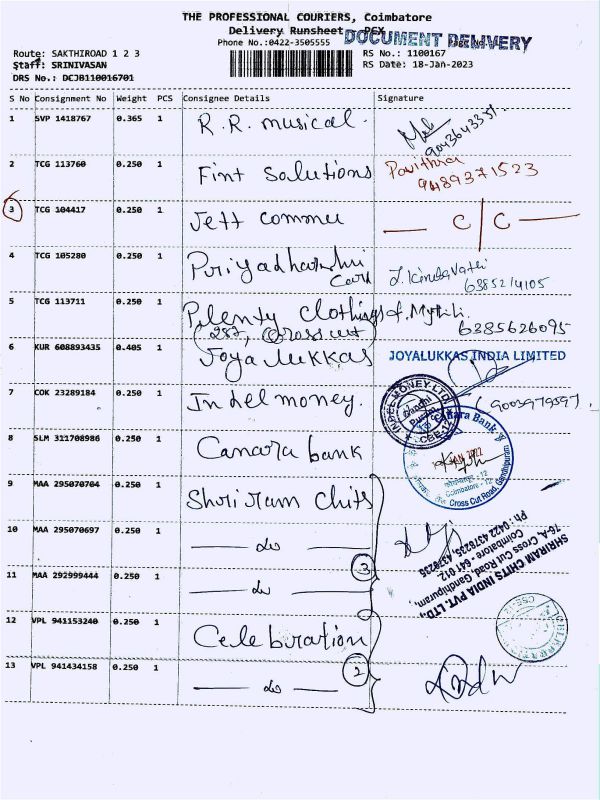 THE PROFESSIONAL COURIERS, Coimbatore
Delivery Runsheet - PEX
Phone No.:0422-3505555
DOCUMENT DELIVERY
Route: SAKTHIROAD 1 2 3
RS No.: 1100167
Staff: SRINIVASAN
RS Date: 18-Jan-2023
DRS No.: DCJB110016701
S No Consignment No Weight PCS Consignee Details Signature
1 SVP 1418767 0.365 1 R.R. musical.
2 TCG 113760 0.250 1 Fint Salutions Pavithra
9489371523
3 TCG 104417 0.250 1 Jett Commu C/C
4 TCG 105280 0.250 1 Priyadharshni
Card
6385214105
5 TCG 113711 0.250 1 Plenty Clothings
(287, Cross cut
6385626095
6 KUR 608893435 0.405 1 Joya lukkas JOYALUKKAS INDIA LIMITED
7 COK 23289184 0.250 1 Indel money.
INDEL MONEY LTD.
Gandhi
Puram
CBE-12
9003979597
8 SLM 311708986 0.250 1 Canara bank
Canara Bank
Coimbatore - 12
Cross Cut Road, Gandhipuram
9 MAA 295070704 0.250 1 Shriram Chits
10 MAA 295070697 0.250 1 — do —
11 MAA 292999444 0.250 1 — do — 3
SHRIRAM CHITS INDIA PVT. LTD.,
76-A, Cross Cut Road, Gandhipuram,
Coimbatore - 641 012.
Ph : 0422 4376235, 4376235
12 VPL 941153240 0.250 1 Celebration
13 VPL 941434158 0.250 1 — do — 2